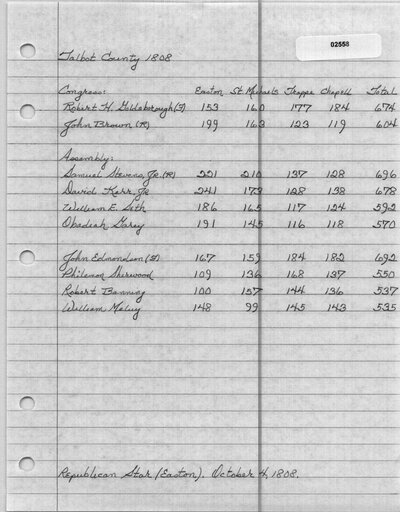 02558
Talbot County 1808
Congress: Easton St Michaels Trappe Chapell Total
Robert H. Goldsborough (F) 153 160 177 184 674
John Brown (R) 199 163 123 119 604
Assembly:
Samuel Stevens, Jr. (R) 221 210 137 128 696
David Kerr, Jr 241 171 128 138 678
William E. Seth 186 165 117 124 592
Obediah Garey 191 145 116 118 570
John Edmondson (F) 167 159 184 182 692
Philemon Sherwood 109 136 168 137 550
Robert Banning 100 157 144 136 537
William 148 99 145 143 535
Republican Star (Easton). October 4, 1808.